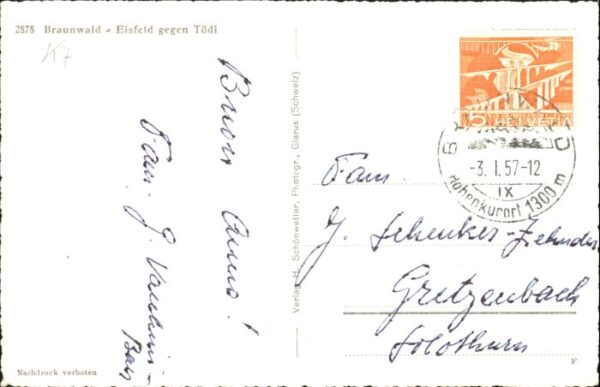 2878 Braunwald - Eisfeld gegen Tödi
K7
Buon Anno!
Fam. J.
Verlag H. Schönwetter, Photogr., Glarus (Schweiz)
5
HELVETIA
-3.I.57-12
IX
Höhenkurort 1300 m
Fam.
J. Schenker-Zehnder
Gretzenbach
Solothurn
Nachdruck verboten
F